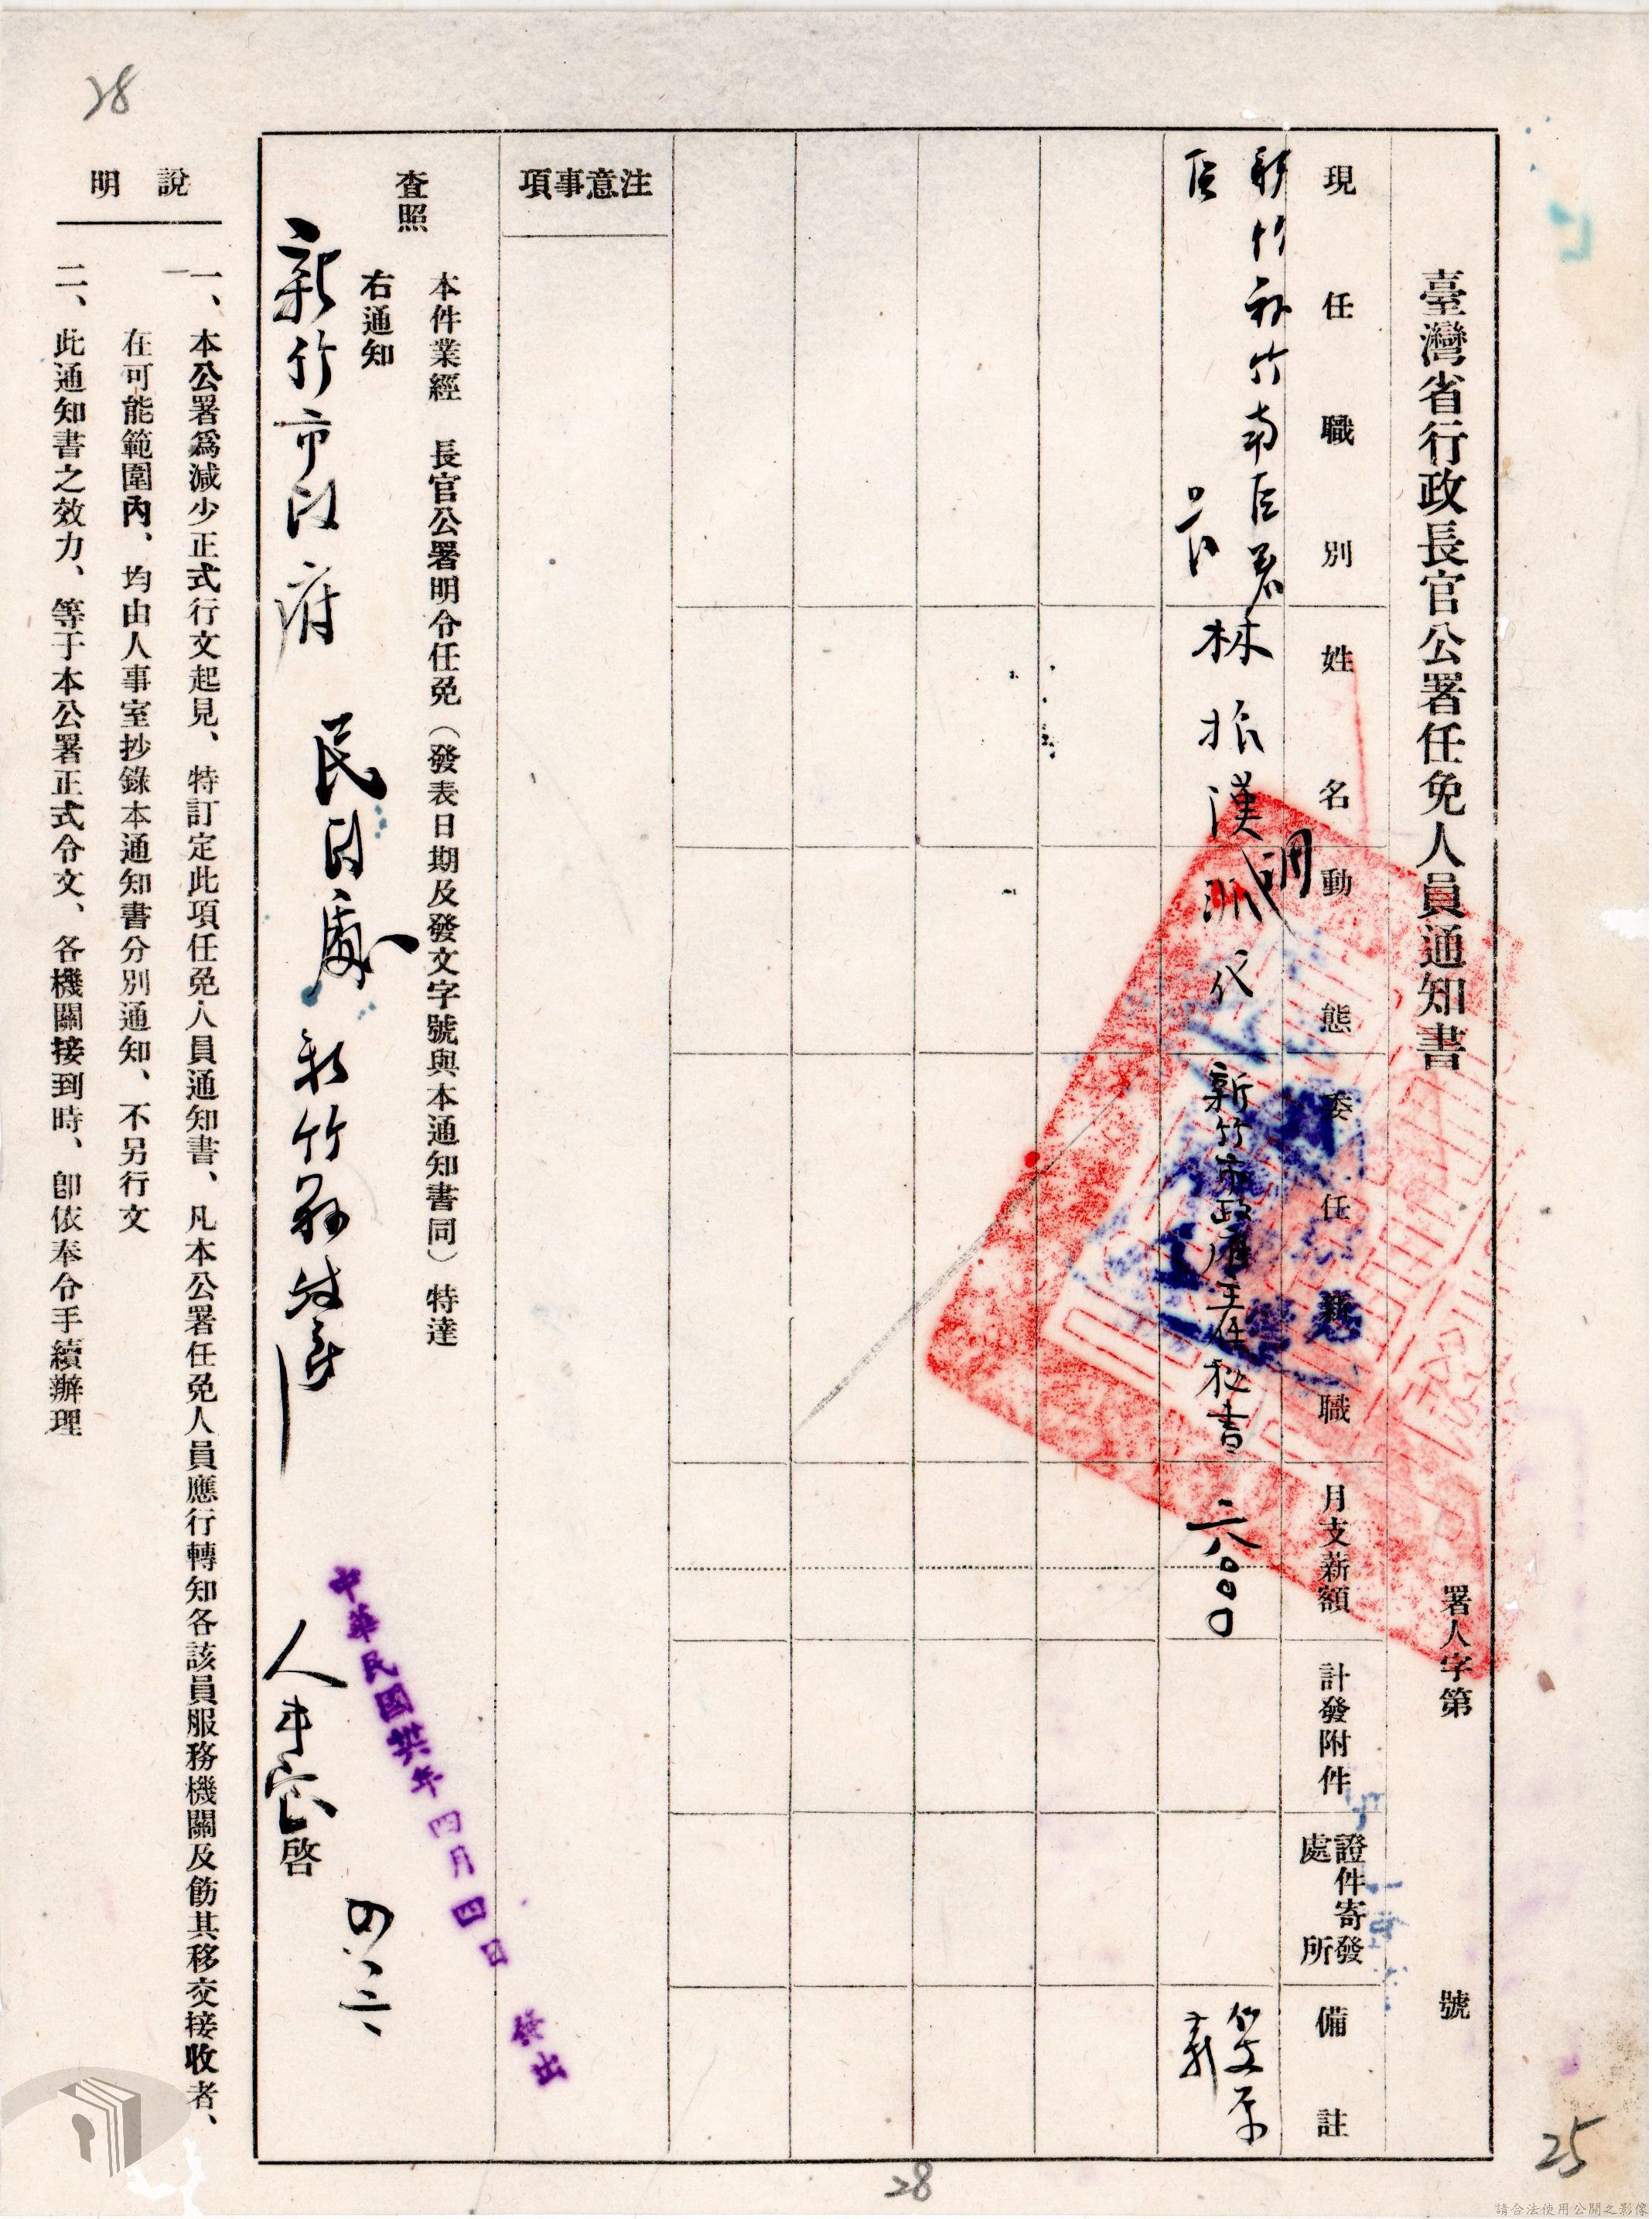 臺灣省行政長官公署任免人員通知書
署人字第 號
現任職別
姓名
動態
委任新職
月支薪額
計發附件
證件寄發處所
備註
新竹縣竹南區署
區長
林振漢
調
派代
新竹市政府主任秘書
二六〇〇〇
注意事項
本件業經 長官公署明令任免（發表日期及發文字號與本通知書同）特達
查照
右通知
新竹市政府 民政處 新竹縣政府
人事室啓
四、三、
中華民國 年四月四日 發出
說明
一、本公署爲減少正式行文起見、特訂定此項任免人員通知書、凡本公署任免人員應行轉知各該員服務機關及飭其移交接收者、
在可能範圍內、均由人事室抄錄本通知書分別通知、不另行文
二、此通知書之效力、等于本公署正式令文、各機關接到時、卽依奉令手續辦理
28
25
28
請合法使用公開之影像